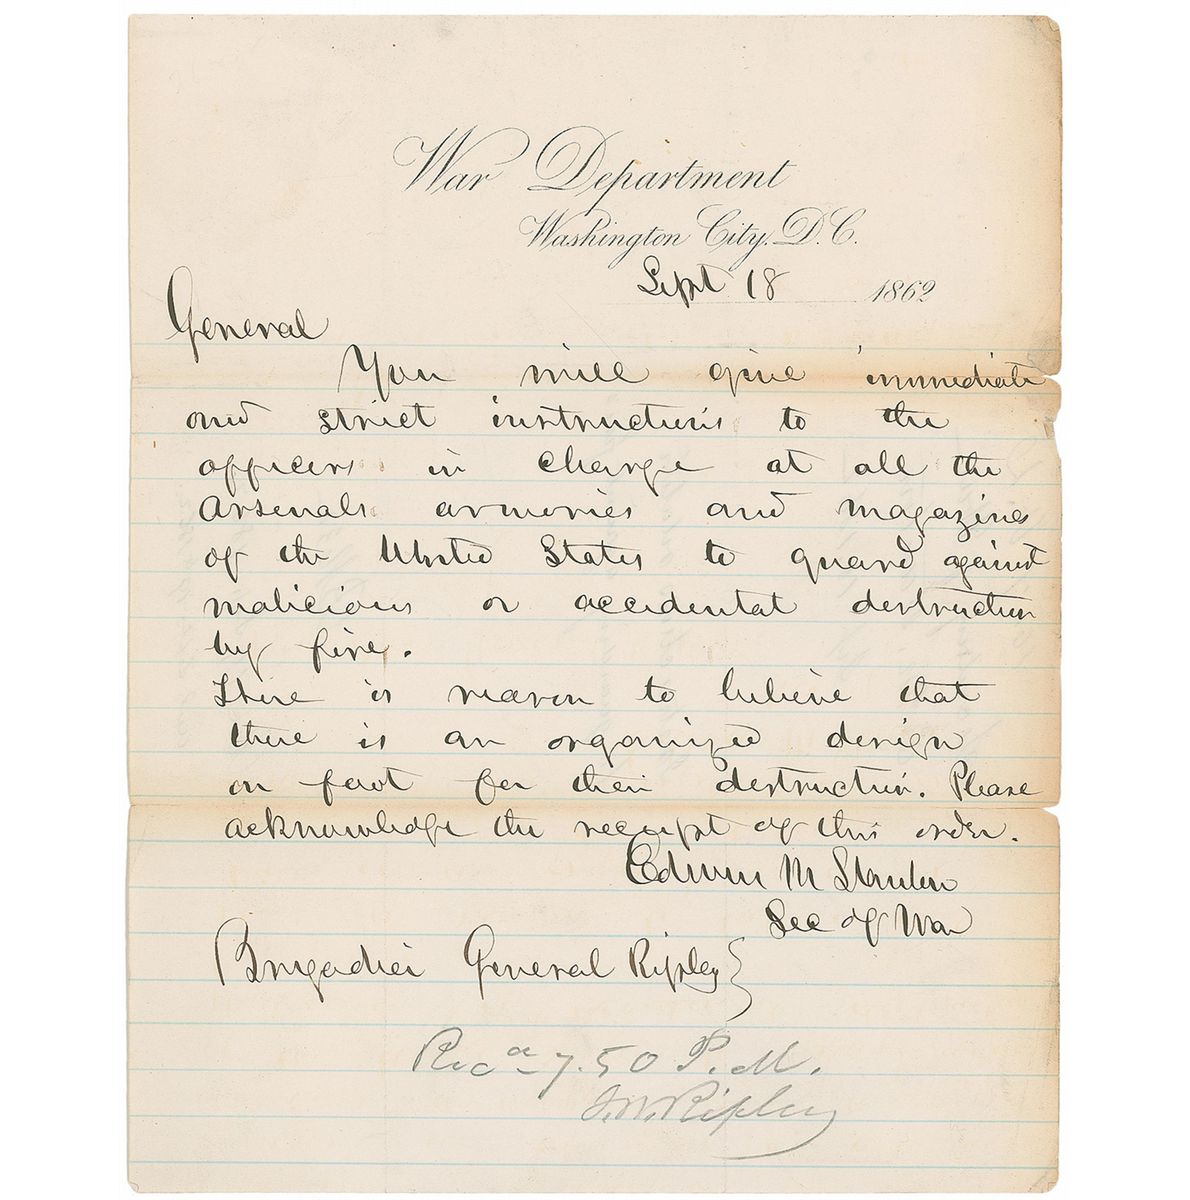 War Department
Washington City, D.C.
Sept 18 1862
General
You will give immediate
and strict instructions to the
officers in charge at all the
Arsenals armories and magazines
of the United States to guard against
malicious or accidental destruction
by fire.
There is reason to believe that
there is an organized design
on foot for their destruction. Please
acknowledge the receipt of this order.
Edwin M Stanton
Sec of War
Brigadier General Ripley }
Recd 7.50 P.M.
J.W. Ripley